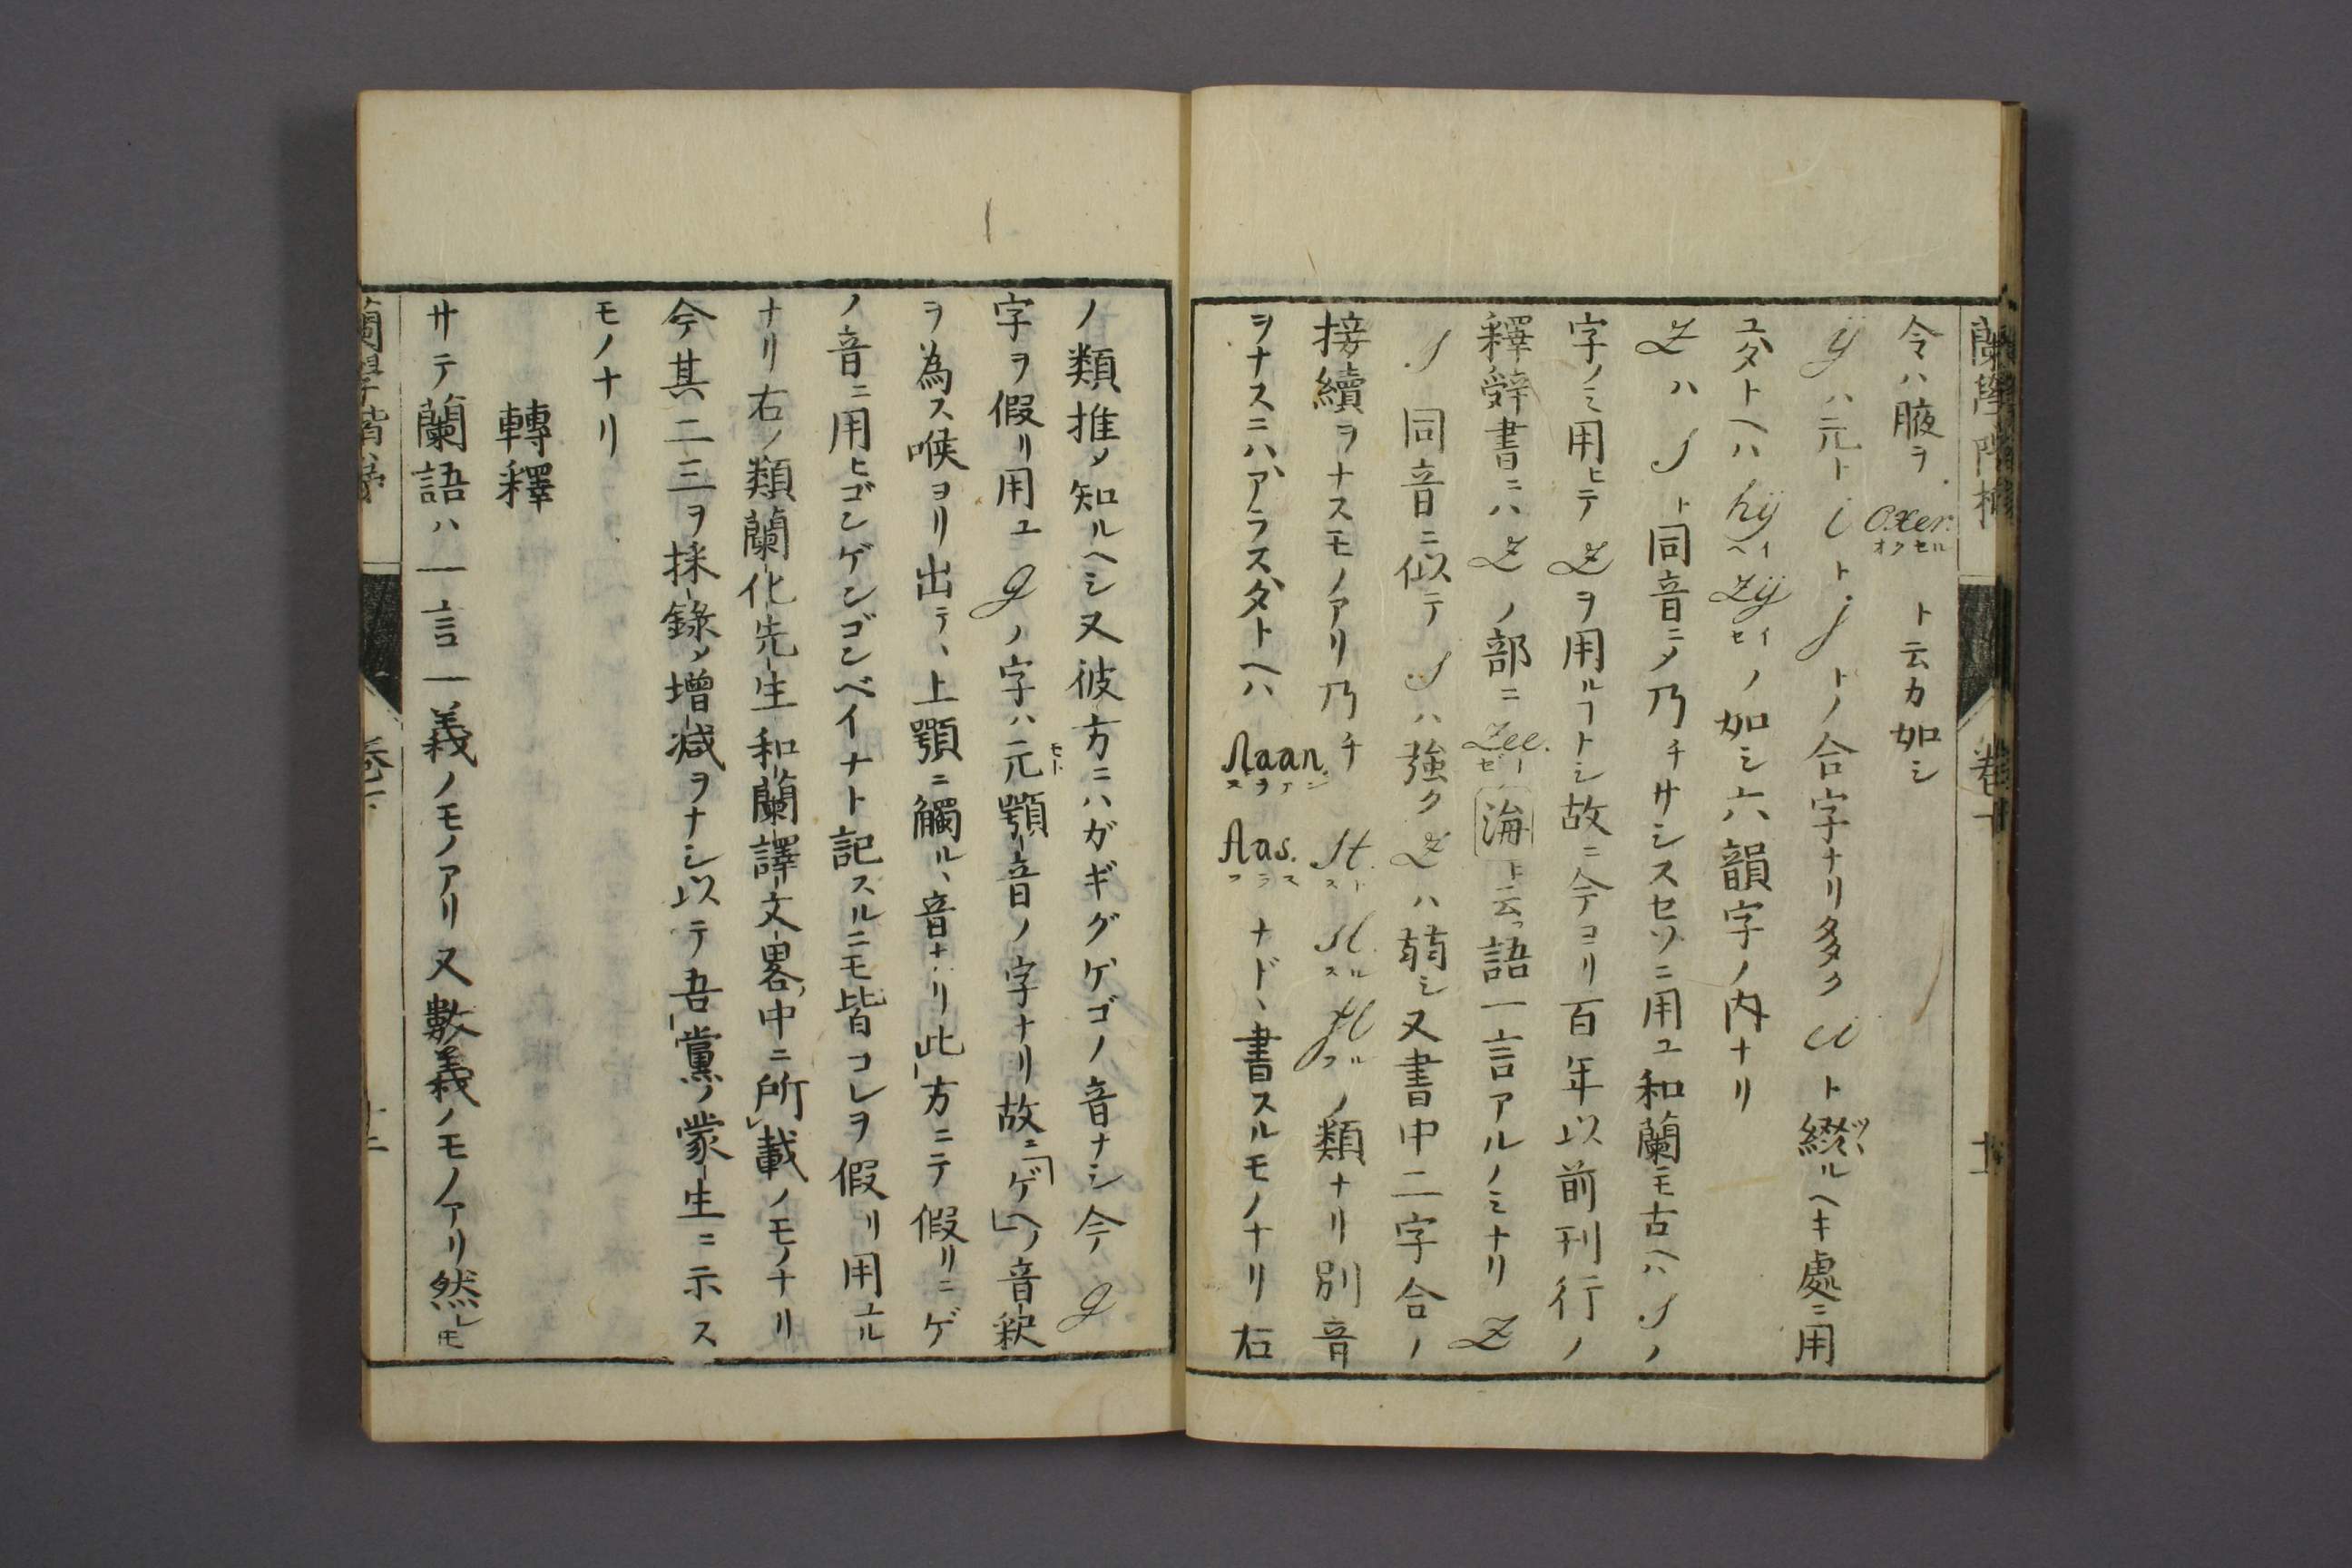 蘭學階梯 卷下 十
令ハ腋ヲ Oxer. オクセル ト云カ如シ
ÿ ハ元ト i ト j トノ合字ナリ多ク u ト綴ルヘキ處ニ用
ユタトヘハ hÿ ヘイ zÿ セイ ノ如シ六韻字ノ内ナリ
Z ハ S ト同音ニメ乃チサシスセソニ用ユ和蘭モ古ヘハ S ノ
字ノミ用ヒテ Z ヲ用ルヿトシ故ニ今ヨリ百年以前刊行ノ
釋辞書ニハ Z ノ部ニ Zee. ゼー 海ト云フ語一言アルノミナリ Z
S 同音ニ似テ S ハ強ク Z ハ弱シ又書中二字合ノ
接續ヲナスモノアリ乃チ St. スト Sl. スル fl. フル ノ類ナリ別音
ヲナスニハアラスタトヘハ Slaan. スラアン flas. フラス ナド、書スルモノナリ右
ノ類推メ知ルヘシ又彼方ニハガギグゲゴノ音ナシ今 g
字ヲ假リ用ユ g ノ字ハ元モト顎音ノ字ナリ故ニ「ゲヘ」ノ音釈
ヲ為ス喉ヨリ出テ、上顎ニ觸ル、音ナリ此方ニテ假リニゲ
ノ音ニ用ヒゴンゲンゴンベイナト記スルニモ皆コレヲ假リ用ユル
ナリ右ノ類蘭化先生和蘭譯文畧中ニ所載ノモノナリ
今其二三ヲ採錄メ増減ヲナシ以テ吾黨ノ蒙生ニ示ス
モノナリ
轉釋
サテ蘭語ハ一言一義ノモノアリ又數義ノモノアリ然レ𪜈
蘭學階梯 卷下